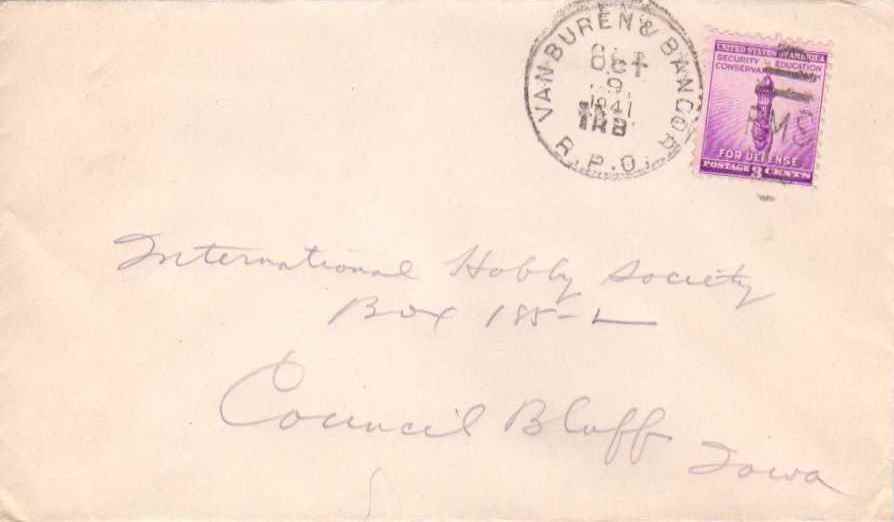 VAN BUREN & BANGOR
OCT
9
1941
TR 8
R.P.O.
UNITED STATES OF AMERICA
SECURITY EDUCATION
CONSERVATION
RMS
FOR DEFENSE
POSTAGE 3 CENTS
International Hobby Society
Box 185-L
Council Bluff
Iowa